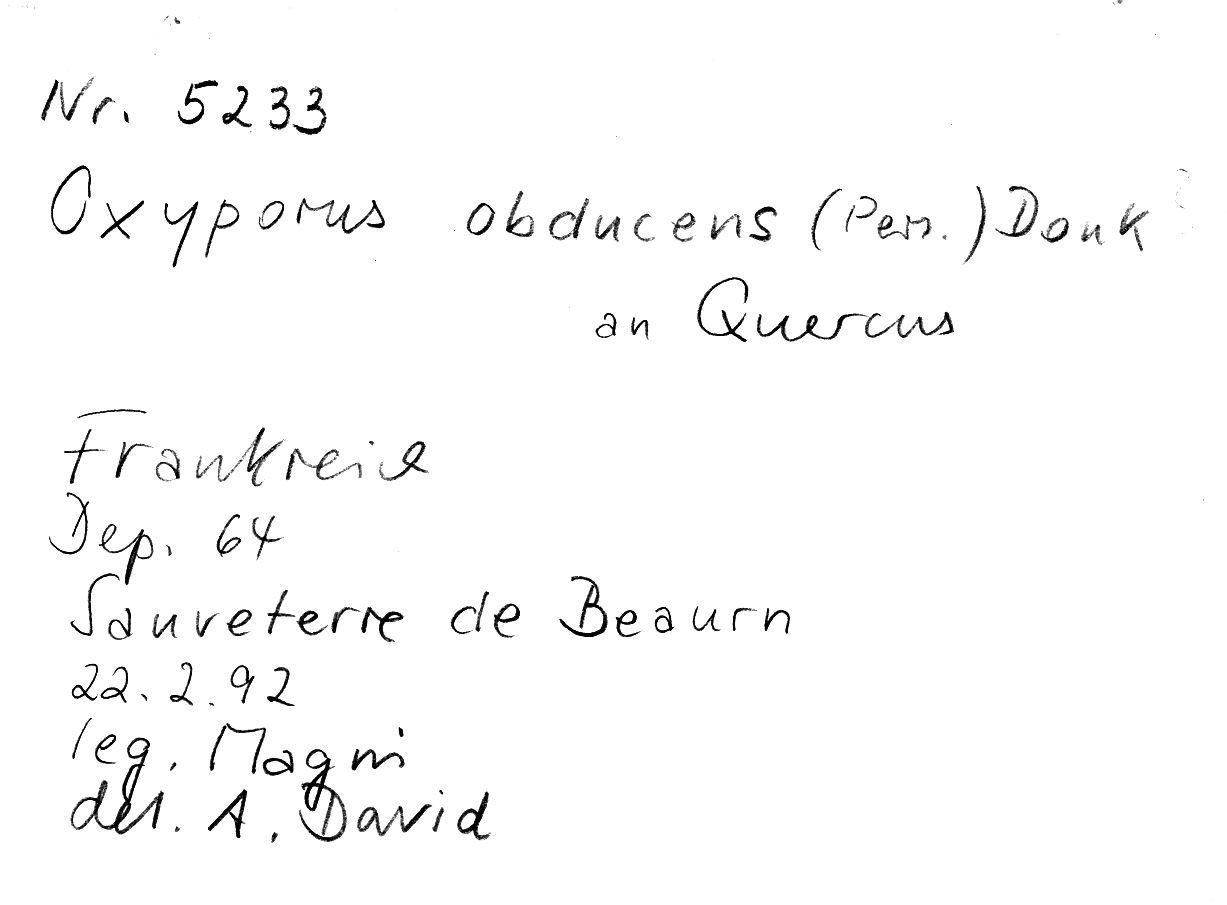 Nr. 5233
Oxyporus obducens (Pers.) Donk
an Quercus
Frankreich
Dep. 64
Sauveterre de Beaurn
22.2.92
leg. Magni
det. A. David